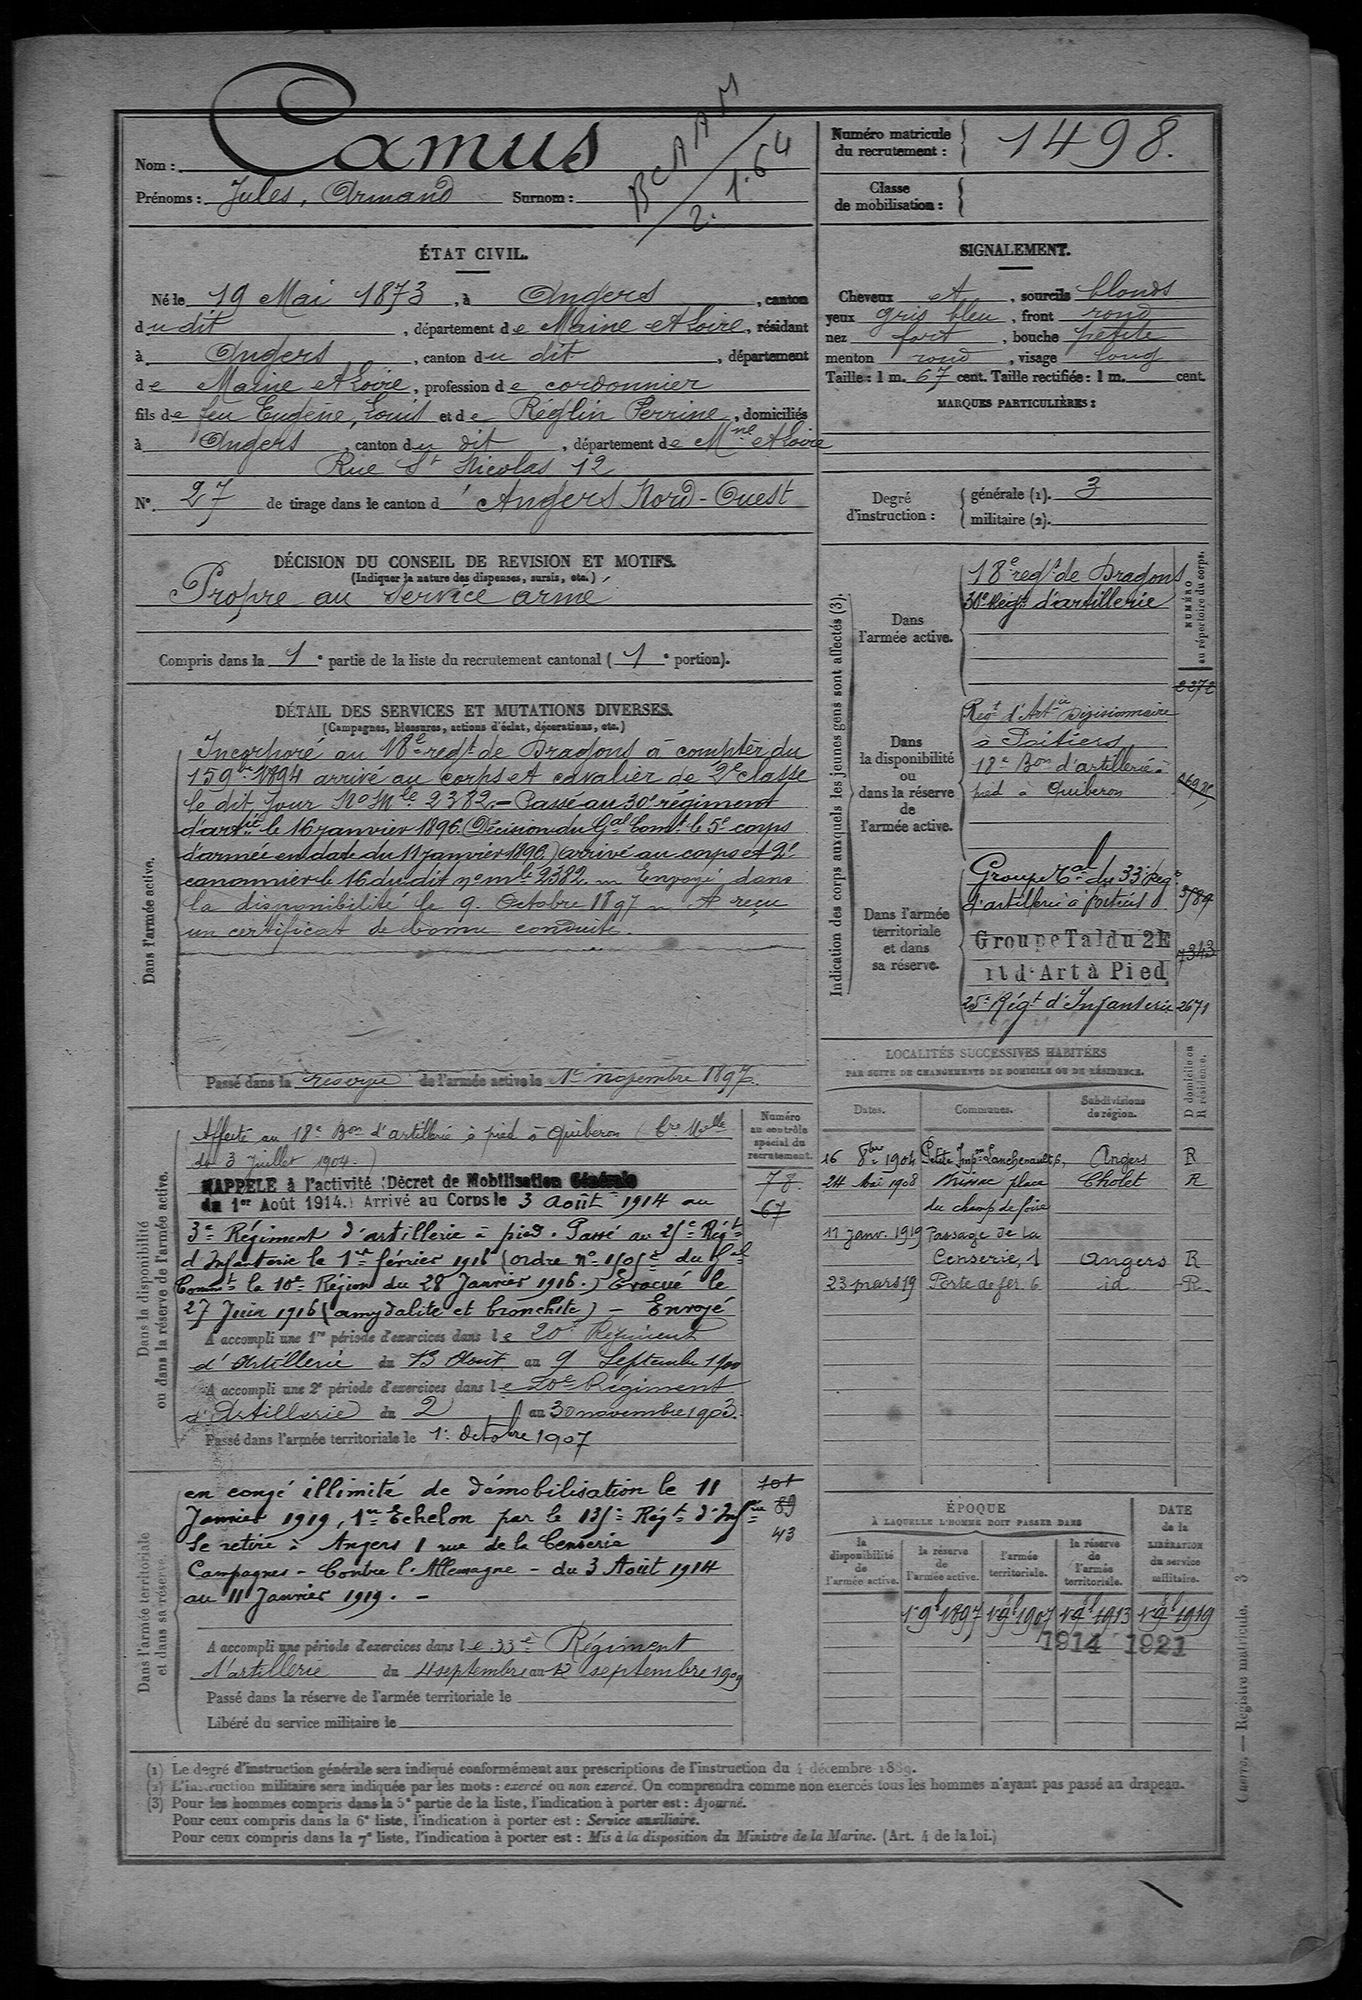 Nom : Camus
Prénoms : Jules, Armand Surnom :
BCAAM
2. 1. 64
Numéro matricule du recrutement : 1498.
Classe de mobilisation :
ÉTAT CIVIL.
Né le 19 Mai 1873, à Angers, canton
du dit, département de Maine et Loire, résidant
à Angers, canton du dit, département
de Maine et Loire, profession de cordonnier
fils de feu Eugène, Louis et de Réglin Perrine, domiciliés
à Angers, canton du dit, département de Mne et Loire
Rue St Nicolas 12
N° 27 de tirage dans le canton d'Angers Nord-Ouest
SIGNALEMENT.
Cheveux et, sourcils blonds
yeux gris bleu, front rond
nez fort, bouche petite
menton rond, visage long
Taille : 1 m. 67 cent. Taille rectifiée : 1 m. cent.
MARQUES PARTICULIÈRES :
Degré d'instruction : générale (1). 3
militaire (2).
DÉCISION DU CONSEIL DE REVISION ET MOTIFS.
(Indiquer la nature des dispenses, sursis, etc.)
Propre au service armé
Compris dans la 1e partie de la liste du recrutement cantonal (1e portion).
DÉTAIL DES SERVICES ET MUTATIONS DIVERSES.
(Campagnes, blessures, actions d'éclat, décorations, etc.)
Dans l'armée active.
Incorporé au 18e regt de Dragons à compter du
15 9bre 1894 arrivé au corps et cavalier de 2e classe
le dit jour No Mle 2382.- Passé au 30e régiment
d'artie le 16 janvier 1896. (Décision du Gal Comt le 5e corps
d'armée en date du 11 janvier 1896.) arrivé au corps et 2e
canonnier le 16 du dit no mle 2382. Envoyé dans
la disponibilité le 9 Octobre 1897. A reçu
un certificat de bonne conduite.
Passé dans la reserve de l'armée active le 1er novembre 1897.
Indication des corps auxquels les jeunes gens sont affectés (3).
NUMÉRO au répertoire du corps.
Dans l'armée active.
18e regt de Dragons
30e Régt d'artillerie
2372
Dans la disponibilité ou dans la réserve de l'armée active.
Regt d'Artie Divisionnaire
à Poitiers
18e Bon d'artillerie à
pied à Quiberon
Dans l'armée territoriale et dans sa réserve.
Groupe Tal du 33e Reg
d'artillerie à Poitiers
Groupe Tal du 2E
rt d'Art à Pied
7343
25e Régt d'Infanterie 2671
LOCALITÉS SUCCESSIVES HABITÉES
PAR SUITE DE CHANGEMENTS DE DOMICILE OU DE RÉSIDENCE.
Dates. Communes. Subdivisions de région. D domicile ou R résidence.
16 8bre 1904 Petite Impse Lanchenault 6, Angers R
24 Mai 1908 place Cholet R
du champ de foire
11 janv. 1919 Passage de la
Censerie, 1 Angers R
23 mars 19 Porte de fer. 6 id R
Dans la disponibilité ou dans la réserve de l'armée active.
Numéro au contrôle spécial du recrutement.
Affecté au 18e Bon d'artillerie à pied à Quiberon (Cre Melle
du 3 Juillet 1904.)
RAPPELÉ à l'activité (Décret de Mobilisation Générale
du 1er Août 1914.) Arrivé au Corps le 3 Août 1914 au
78
67
3e Régiment d'artillerie à pied. Passé au 25e Régt
d'Infanterie le 1er février 1916 (ordre no 1505c du Gal
Commt la 10e Région du 28 Janvier 1916.) Evacué le
27 Juin 1916 (amygdalite et bronchite) - Envoyé
A accompli une 1re période d'exercices dans le 20e Régiment
d'Artillerie du 13 Août au 9 Septembre 1900
A accompli une 2e période d'exercices dans le 20e Régiment
d'Artillerie du 2 au 30 novembre 1903.
Passé dans l'armée territoriale le 1er Octobre 1907
Dans l'armée territoriale et dans sa réserve.
en congé illimité de démobilisation le 11
Janvier 1919, 1er Echelon par le 135e Régt d'Infrie
Se retire à Angers 1 rue de la Censerie
Campagnes - Contre l'Allemagne - du 3 Août 1914
au 11 Janvier 1919. -
101
89
43
A accompli une période d'exercices dans le 33e Régiment
d'artillerie du 4 septembre au 12 septembre 1909
Passé dans la réserve de l'armée territoriale le
Libéré du service militaire le
ÉPOQUE
À LAQUELLE L'HOMME DOIT PASSER DANS
la disponibilité de l'armée active. la réserve de l'armée active. l'armée territoriale. la réserve de l'armée territoriale. DATE de la LIBÉRATION du service militaire.
1 9b 1897 1 9b 1907 1 9b 1913 1 9b 1919
1914 1921
(1) Le degré d'instruction générale sera indiqué conformément aux prescriptions de l'instruction du 4 décembre 1889.
(2) L'instruction militaire sera indiquée par les mots : exercé ou non exercé. On comprendra comme non exercés tous les hommes n'ayant pas passé au drapeau.
(3) Pour les hommes compris dans la 5e partie de la liste, l'indication à porter est : Ajourné.
Pour ceux compris dans la 6e liste, l'indication à porter est : Service auxiliaire.
Pour ceux compris dans la 7e liste, l'indication à porter est : Mis à la disposition du Ministre de la Marine. (Art. 4 de la loi.)
— Registre matricule. 3